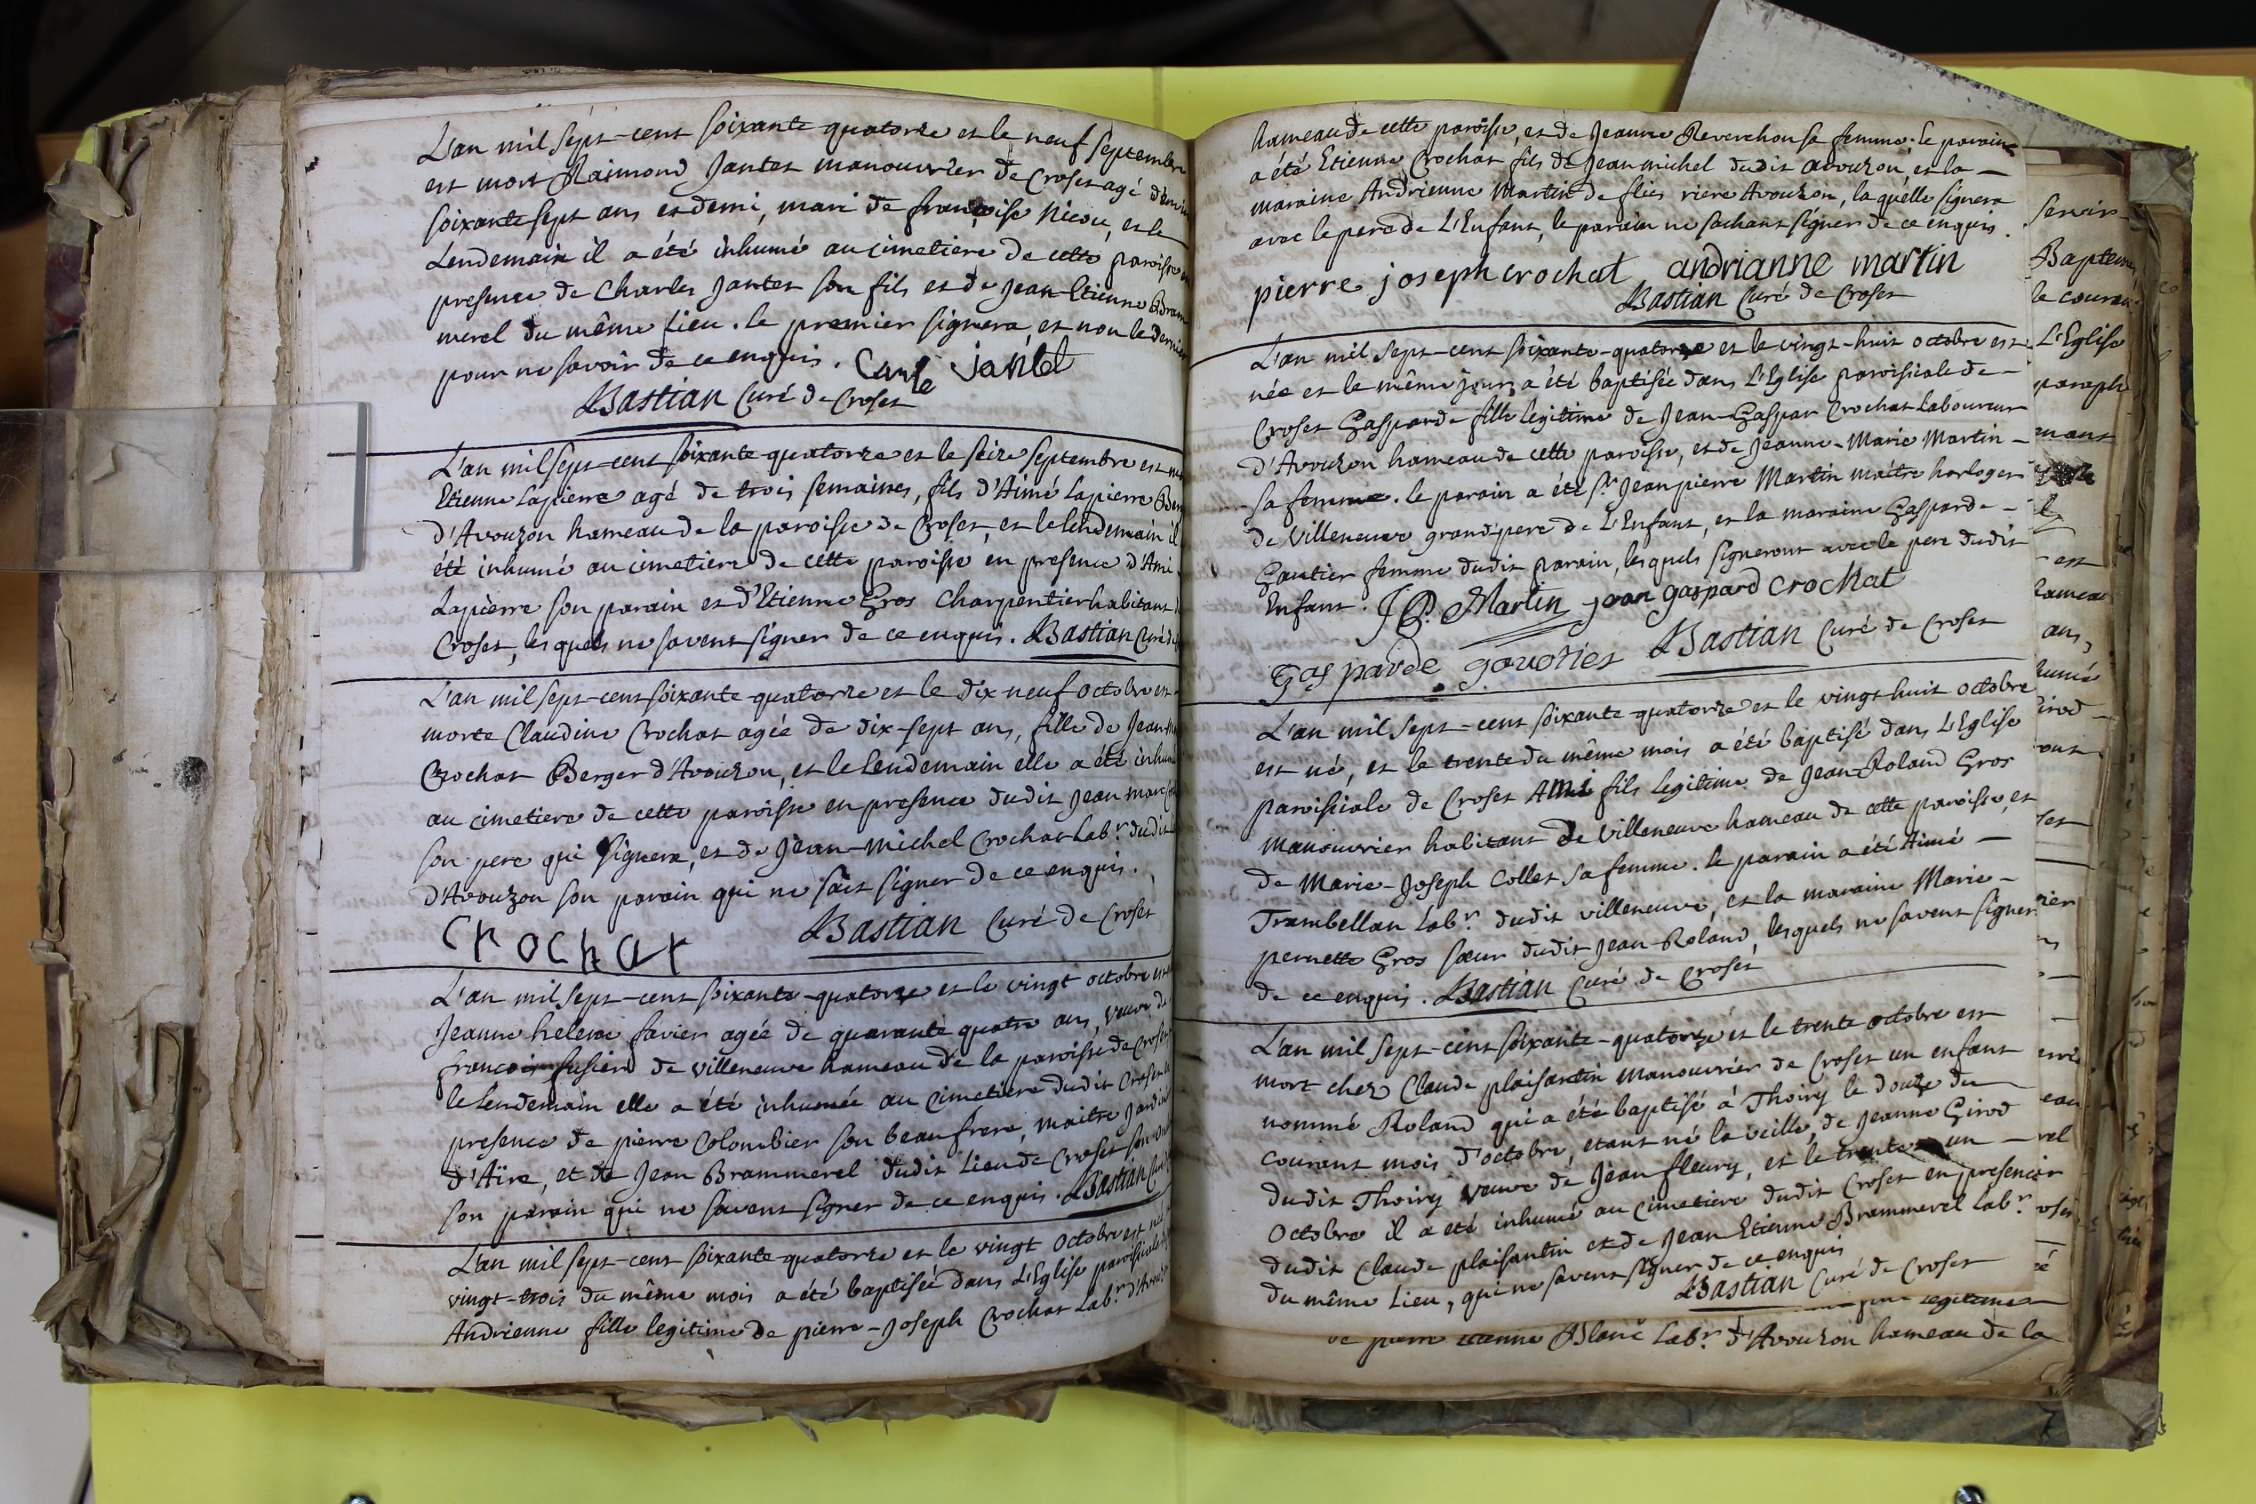 L'an mil sept-cent soixante quatorze et le neuf Septembre
est mort Raimond Jantet manouvrier de Croset agé
soixante sept ans et demi, mari de françoise Nicou, et le
Lendemain il a été inhumé au cimetiere de cette paroisse
presence de Charles Jantet son fils et de Jean Etienne Bram
merel du même Lieu. le premier signera et non le dernier
pour ne savoir de ce enquis. Carle Jantet
Bastian Curé de Croset
L'an mil sept-cent soixante quatorze et le seize Septembre est
Etienne Lapierre agé de trois semaines, fils d'Aimé Lapierre
d'Avouzon hameau de la paroisse de Croset, et le lendemain il
été inhumé au cimetiere de cette paroisse en presence d'Ami
Lapierre son parain et d'Etienne Gros Charpentier habitant
Croset, lesquels ne savent signer de ce enquis. Bastian Curé
L'an mil sept-cent soixante quatorze et le dix neuf octobre est
morte Claudine Crochat agée de dix-sept ans, fille de Jean
Crochat Berger d'Avouzon, et le Lendemain elle a été
au cimetiere de cette paroisse en presence dudit Jean marc
son pere qui signera, et de Jean-Michel Crochat Lab.r dudit
d'Avouzon son parain qui ne sait signer de ce enquis.
Crochat Bastian Curé de Croset
L'an mil sept-cent soixante-quatorze et le vingt octobre est
Jeanne helene favier agée de quarante quatre ans, veuve de
francois fusier de villeneuve hameau de la paroisse de Croset
le Lendemain elle a été inhumée au Cimetiere dudit Croset
presence de pierre Colombier son beaufrere, maitre
d'Aïre, et de Jean Brammerel dudit Lieu de Croset
son parain qui ne savent signer de ce enquis. Bastian
L'an mil sept-cent soixante quatorze et le vingt octobre est
vingt-trois du même mois a été baptisée dans L'Eglise paroissiale
Andrienne fille legitime de pierre-Joseph Crochat Lab.r
hameau de cette paroisse, et de Jeanne Reverchon sa femme; le parain
a été Etienne Crochat fils de Jean michel dudit avouzon, et la —
maraine Andrienne Martin de flies riere Avouzon, laquelle signera
avec le pere de L'Enfant, le parain ne sachant signer de ce enquis.
pierre joseph crochat andrianne martin
Bastian Curé de Croset
L'an mil sept-cent soixante-quatorze et le vingt-huit octobre est
née et le même jour a été baptisée dans L'Eglise paroissiale de —
Croset Gasparde fille legitime de Jean-Gaspar Crochat Laboureur
d'Avouzon hameau de cette paroisse, et de Jeanne-Marie Martin —
sa femme. le parain a été S.r Jean pierre Martin maitre horloger
de Villeneuve grand-pere de L'Enfant, et la maraine Gasparde —
Gautier femme dudit parain, lesquels signeront avec le pere dudit
Enfant. J P. Martin jean gaspard crochat
Gasparde gautier Bastian Curé de Croset
L'an mil sept-cent soixante quatorze et le vingt huit octobre
est né, et le trente du même mois a été baptisé dans L'Eglise
paroissiale de Croset Ami fils legitime de Jean-Roland Gros
Manouvrier habitant de Villeneuve hameau de cette paroisse, et
de Marie-Joseph Collet sa femme. le parain a été Aimé —
Trambellan Lab.r dudit villeneuve, et la maraine Marie —
pernette Gros sœur dudit Jean-Roland, lesquels ne savent signer
de ce enquis. Bastian Curé de Croset
L'an mil sept-cent soixante-quatorze et le trente octobre est
mort chez Claude plaisantin manouvrier de Croset un enfant
nommé Roland qui a été baptisé à Thoiry le douze du
courant mois d'octobre, etant né la veille, de Jeanne Girod
dudit Thoiry veuve de Jean fleury, et le trente un —
Octobre il a été inhumé au cimetiere dudit Croset en presence
dudit Claude plaisantin et de Jean Etienne Brammerel Lab.r
du même Lieu, qui ne savent signer de ce enquis
Bastian Curé de Croset
legitime
de pierre etienne Blanc Lab.r d'Avouzon hameau de la
L'Eglise